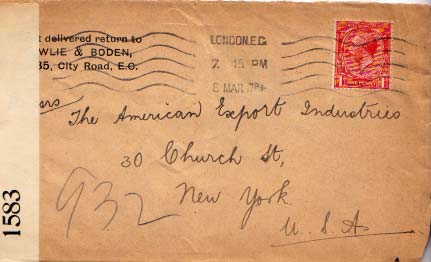 t delivered return to
WLIE & BODEN,
35, City Road, E.C.
LONDON.E.C.
7. 15 PM
8 MAR
ONE PENNY
The American Export Industries
30 Church St,
New York.
U.S.A
932
1583